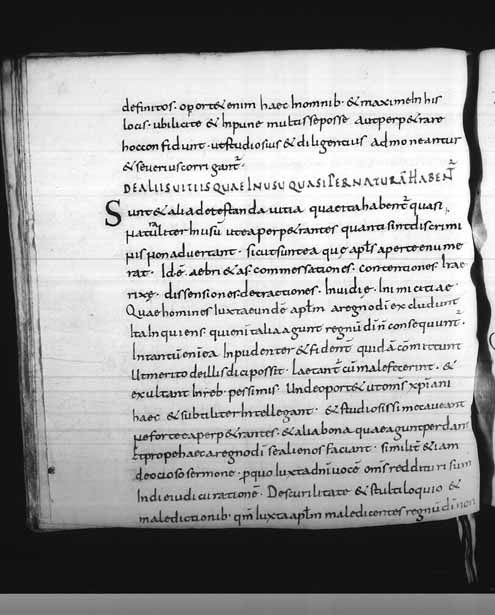 definitos. oportet enim haec In omnib. & maxime In his
locis. ubi licite & Inpune multis se posse aut perpetrare
hoc confidunt. ut studiosius & diligentius admoneantur
& severius corrigant̄.
DE ALIIS UITIIS QUAE IN USU QUASI PER NATURĀ HABENT̄
Sunt & alia detestanda uitia quae ita habent̄ quasi
naturalit̄ In usū ut ea perpetrantes quanti sint discrimi
nis non aduertant. sicut sunt ea quę apl̄s aperte enume
rat. Id ē. aebri&as. commessationes. contentiones. Irae
rixę. dissensiones. detractiones. Inuidię. Inimicitiae.
Quae homines Iuxta eundē apl̄m a regno dī excludunt
Ita Inquiens. quoniā talia agunt regnū dī ñ consequunt̄.
In tantū enī ea Inpudenter & fident̄ quidā cōmittunt
ut merito de illis dici possit. laetant̄ cū malefecerint. &
exultant In reb. pessimis. Unde oport& ut om̄s xp̄iani
haec & subtiliter Intellegant. & studiosissime caueant
ne forte ea perp&rantes. & alia bona quae agunt perdant
& propter haec a regno dī se alienos faciant. similit̄ & iam
de ocioso sermone. p̱ quo Iuxta dn̄i uocē om̄s reddituri sunt
In die iudicii rationē. De scurilitate & stultiloquio &
maledictionib. qm̄ Iuxta apl̄m maledicentes regnū dī non